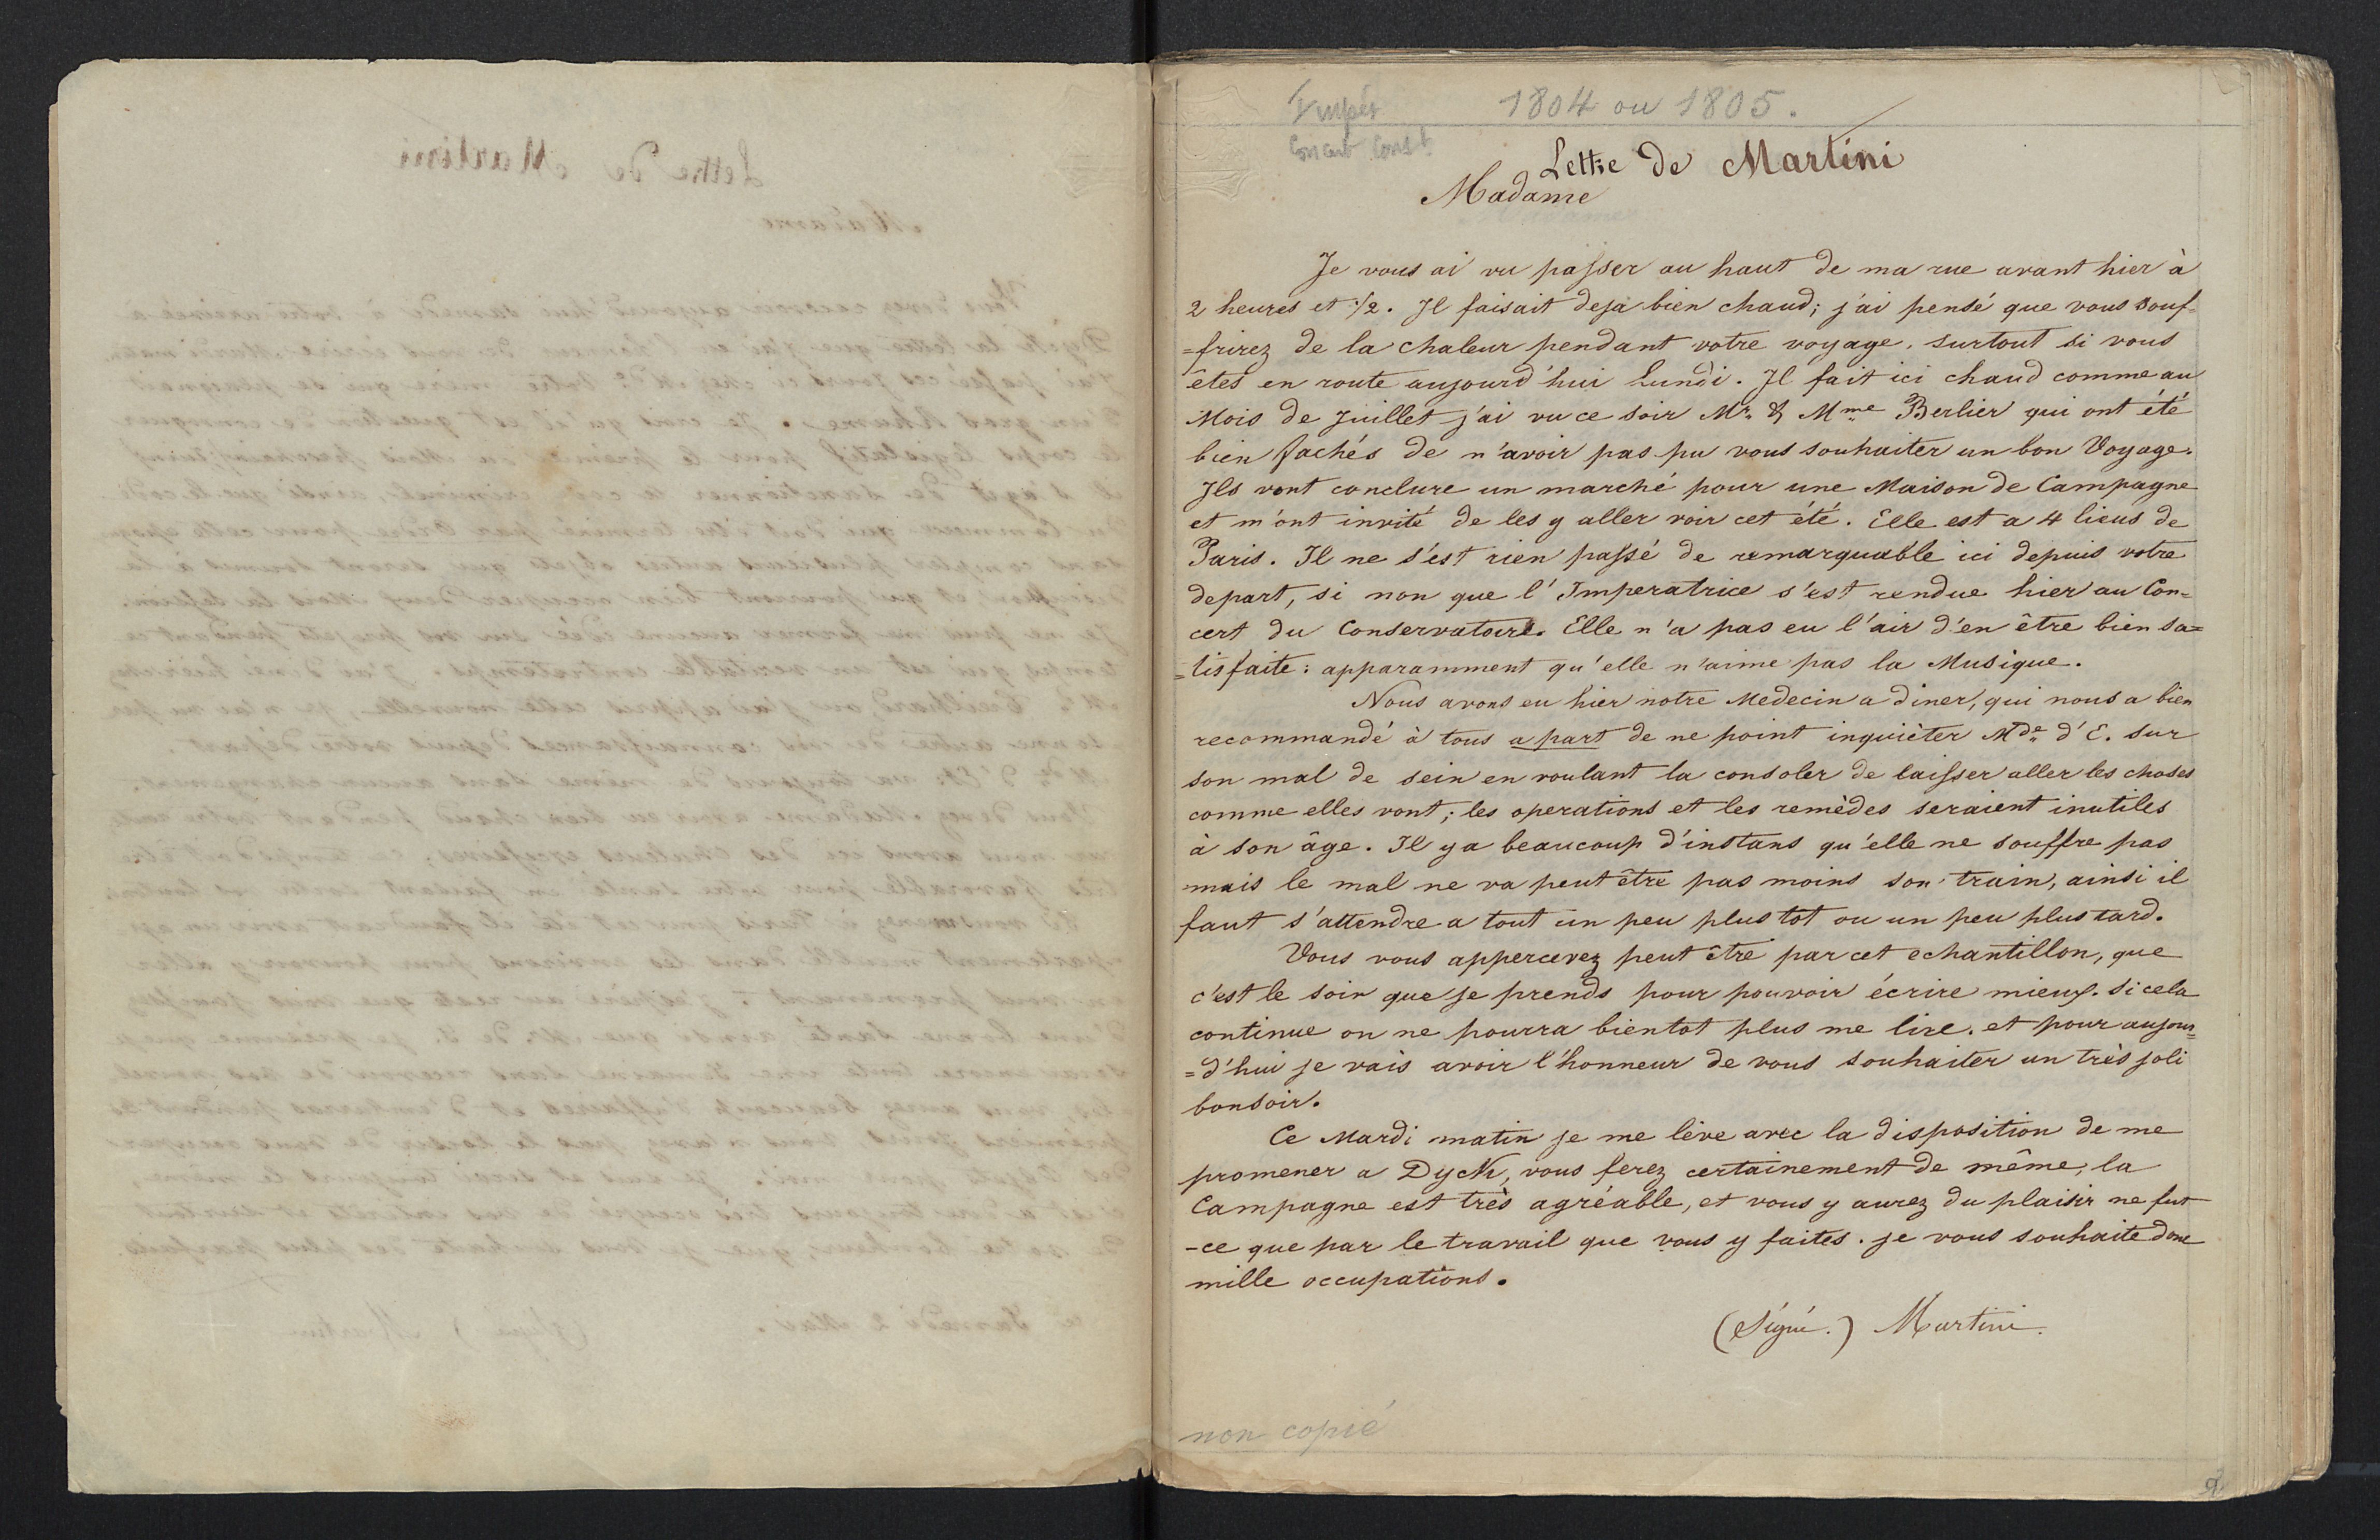 1804 ou 1805.
Concert Const.
Lettre de Martini
Madame
Je vous ai vu passer au haut de ma rue avant hier à
2 heures et 1/2. Il faisait deja bien chaud; j'ai pensé que vous souf-
=frirez de la chaleur pendant votre voyage, surtout si vous
êtes en route aujourd'hui Lundi. Il fait ici chaud comme au
Mois de Juillet j'ai vu ce soir Mr. & Mme Berlier qui ont été
bien fachés de n'avoir pas pu vous souhaiter un bon Voyage.
Ils vont conclure un marché pour une Maison de Campagne
et m'ont invité de les y aller voir cet été. Elle est a 4 lieus de
Paris. Il ne s'est rien passé de remarquable ici depuis votre
depart, si non que l'Imperatrice s'est rendue hier au Con-
cert du Conservatoire. Elle n'a pas eu l'air d'en être bien sa=
=tisfaite: apparamment qu'elle n'aime pas la Musique.
Nous avons eu hier notre Medecin a diner, qui nous a bien
recommandé à tous a part de ne point inquièter Mde d'E. sur
son mal de sein en voulant la consoler de laisser aller les choses
comme elles vont; les operations et les remèdes seraient inutiles
à son âge. Il y a beaucoup d'instans qu'elle ne souffre pas
mais le mal ne va peut être pas moins son train, ainsi il
faut s'attendre a tout un peu plus tot ou un peu plus tard.
Vous vous appercevez peut être par cet echantillon, que
c'est le soir que je prends pour pouvoir écrire mieux. si cela
continue on ne pourra bientot plus me lire. et pour aujour=
=d'hui je vais avoir l'honneur de vous souhaiter un très joli
bonsoir.
Ce Mardi matin je me lève avec la disposition de me
promener a Dyck, vous ferez certainement de même, la
Campagne est très agréable, et vous y aurez du plaisir ne fut
-ce que par le travail que vous y faites. je vous souhaite donc
mille occupations.
(Signé.) Martini.
non copié
2